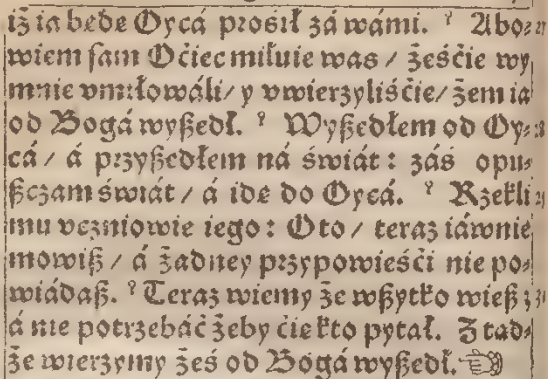 iż ia bede Oycá prosił zá wámi. ⁊ Abo⸗ 27
wiem sam Oćiec miłuie was / żeśćie wy
mnie vmiłowáli / y vwierzyliśćie / żem ia
od Bogá wyßedł. ⁊ Wyßedłem od Oy⸗ 28
cá / á przyßedłem ná świát : záś opu⸗
ßczam świát / á ide do Oycá. ⁊ Rzekli 29
mu vczniowie iego : Oto / teraz iáwnie
mowiß / á żadney przypowieśći nie po⸗
wiádaß. ⁊ Teraz wiemy że wßytko wieß ; 31
á nie potrzebáć żeby ćie kto pytał. Z tad⸗
że wierzymy żeś od Bogá wyßedł. ☜